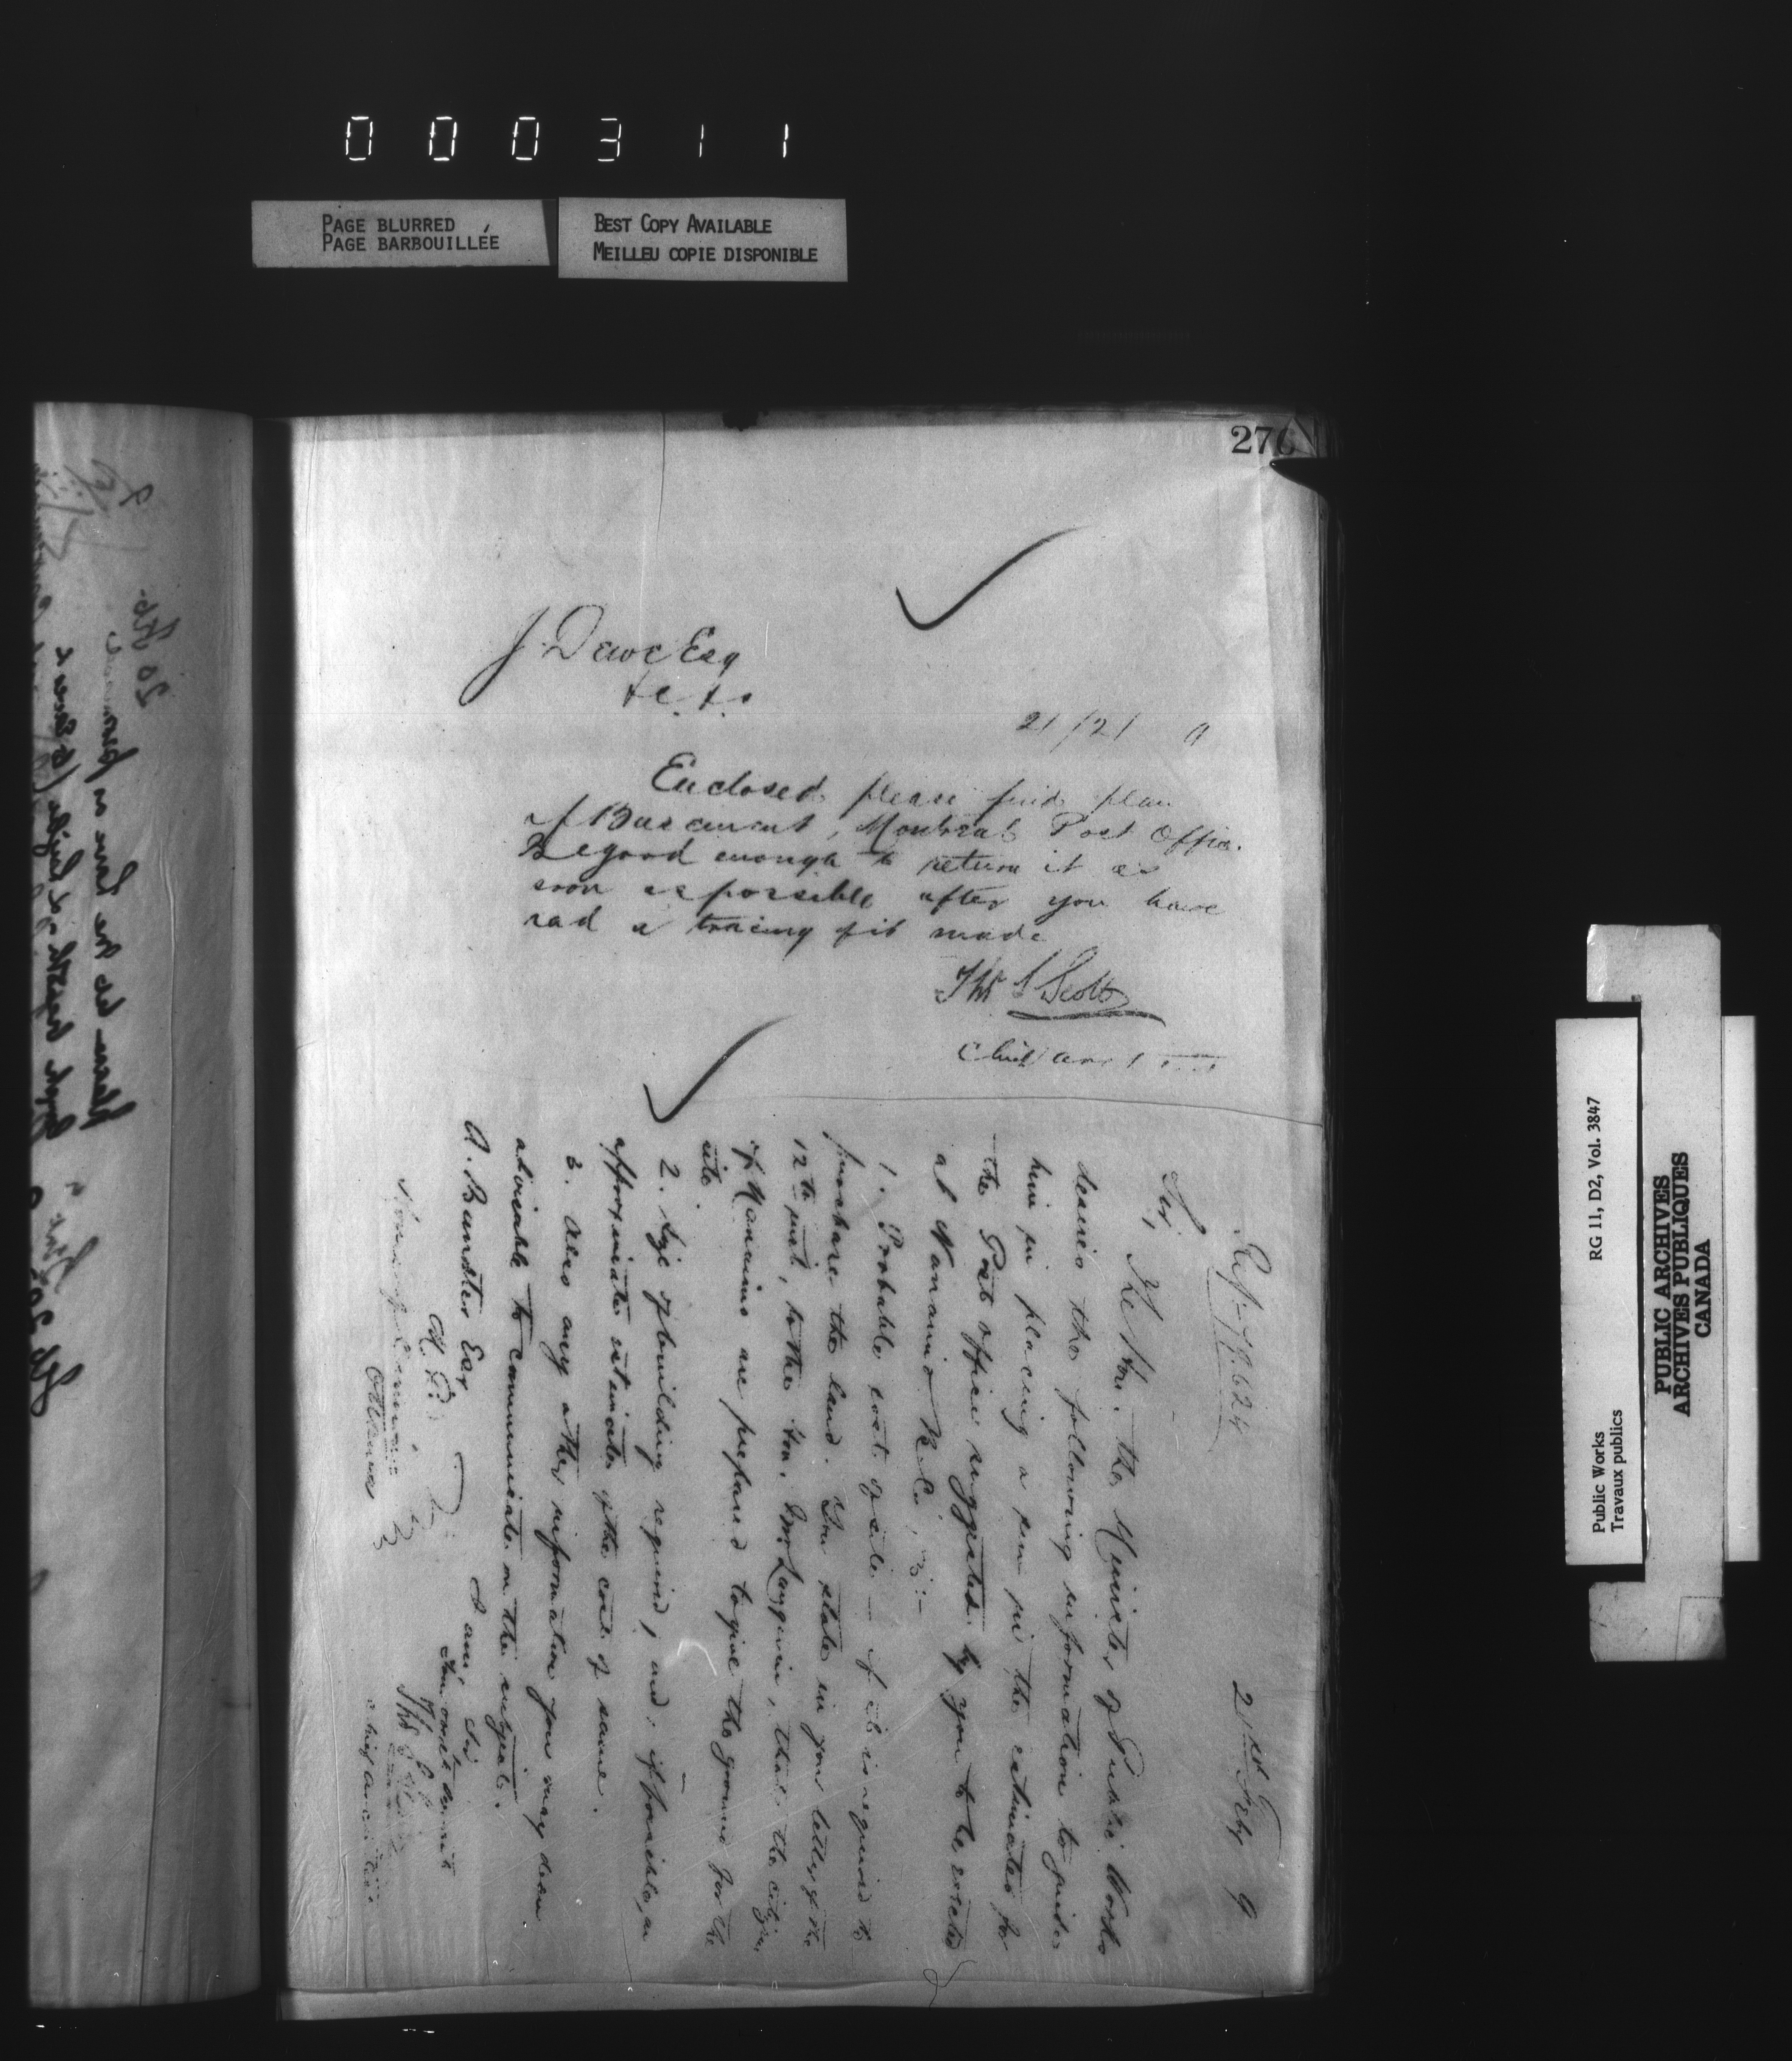 000311
PAGE BLURRED
PAGE BARBOUILLÉE
BEST COPY AVAILABLE
MEILLEU COPIE DISPONIBLE
276
J. Dewe Esq
&c. &c.
21/2/ 9
Enclosed please find plan
of Basement, Montreal Post Office.
Be good enough to return it as
soon as possible after you have
had a tracing of it made
Thos S Scott
Chief Arc
Ref. 19.624
21st Feby 9
Sir,
The Hon. the Minister of Public Works
desires the following information to guide
him in placing a sum in the estimates for
the Post office suggested by you to be erected
at Nanaimo B.C. viz:-
1. Probable cost of site - if it is required to
purchase the land. You state in your letter of the
12th inst, to the Hon. Mr. Langevin, that the citizens
of Nanaimo are prepared to give the ground for the
site.
2. Size of building required, and, if possible, an
approximate estimate of the cost of same.
3. Also any other information you may deem
advisable to communicate on the subject.
I am, Sir
Your obdt servant
Thos S Scott
Chief Architect
A. Bunster Esq
M. P.
House of Commons
Ottawa
20 Feb
Public Works
Travaux publics
RG 11, D2, Vol. 3847
PUBLIC ARCHIVES
ARCHIVES PUBLIQUES
CANADA